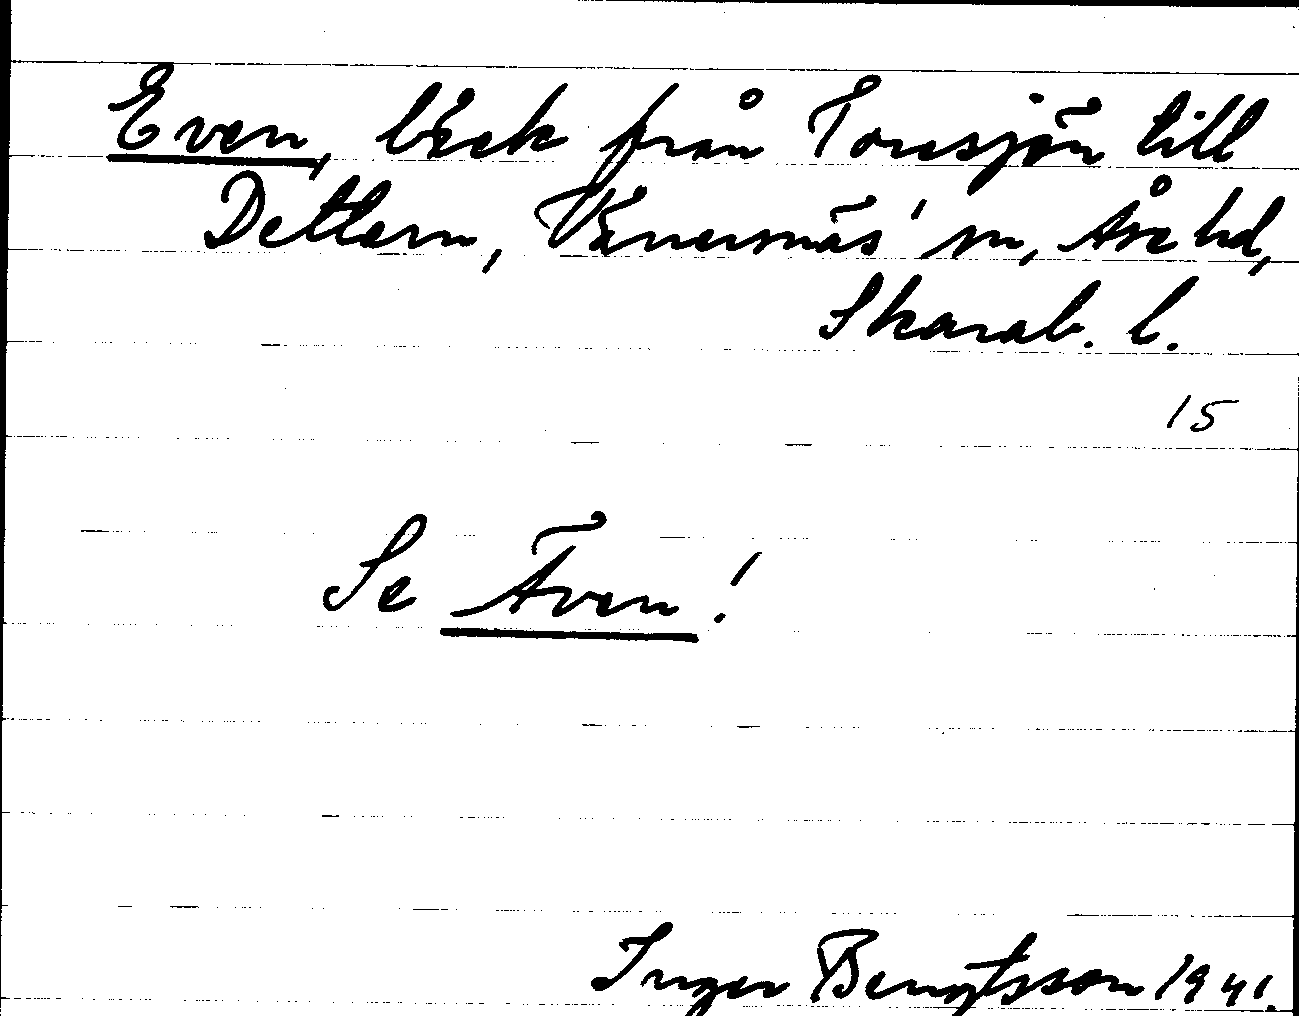 Even, bäck från Tovesjön till
Dettern, Vänersnäs' sn, Åse hd,
Skarab. l.
15
Se Även!
Inger Bengtsson 1941.